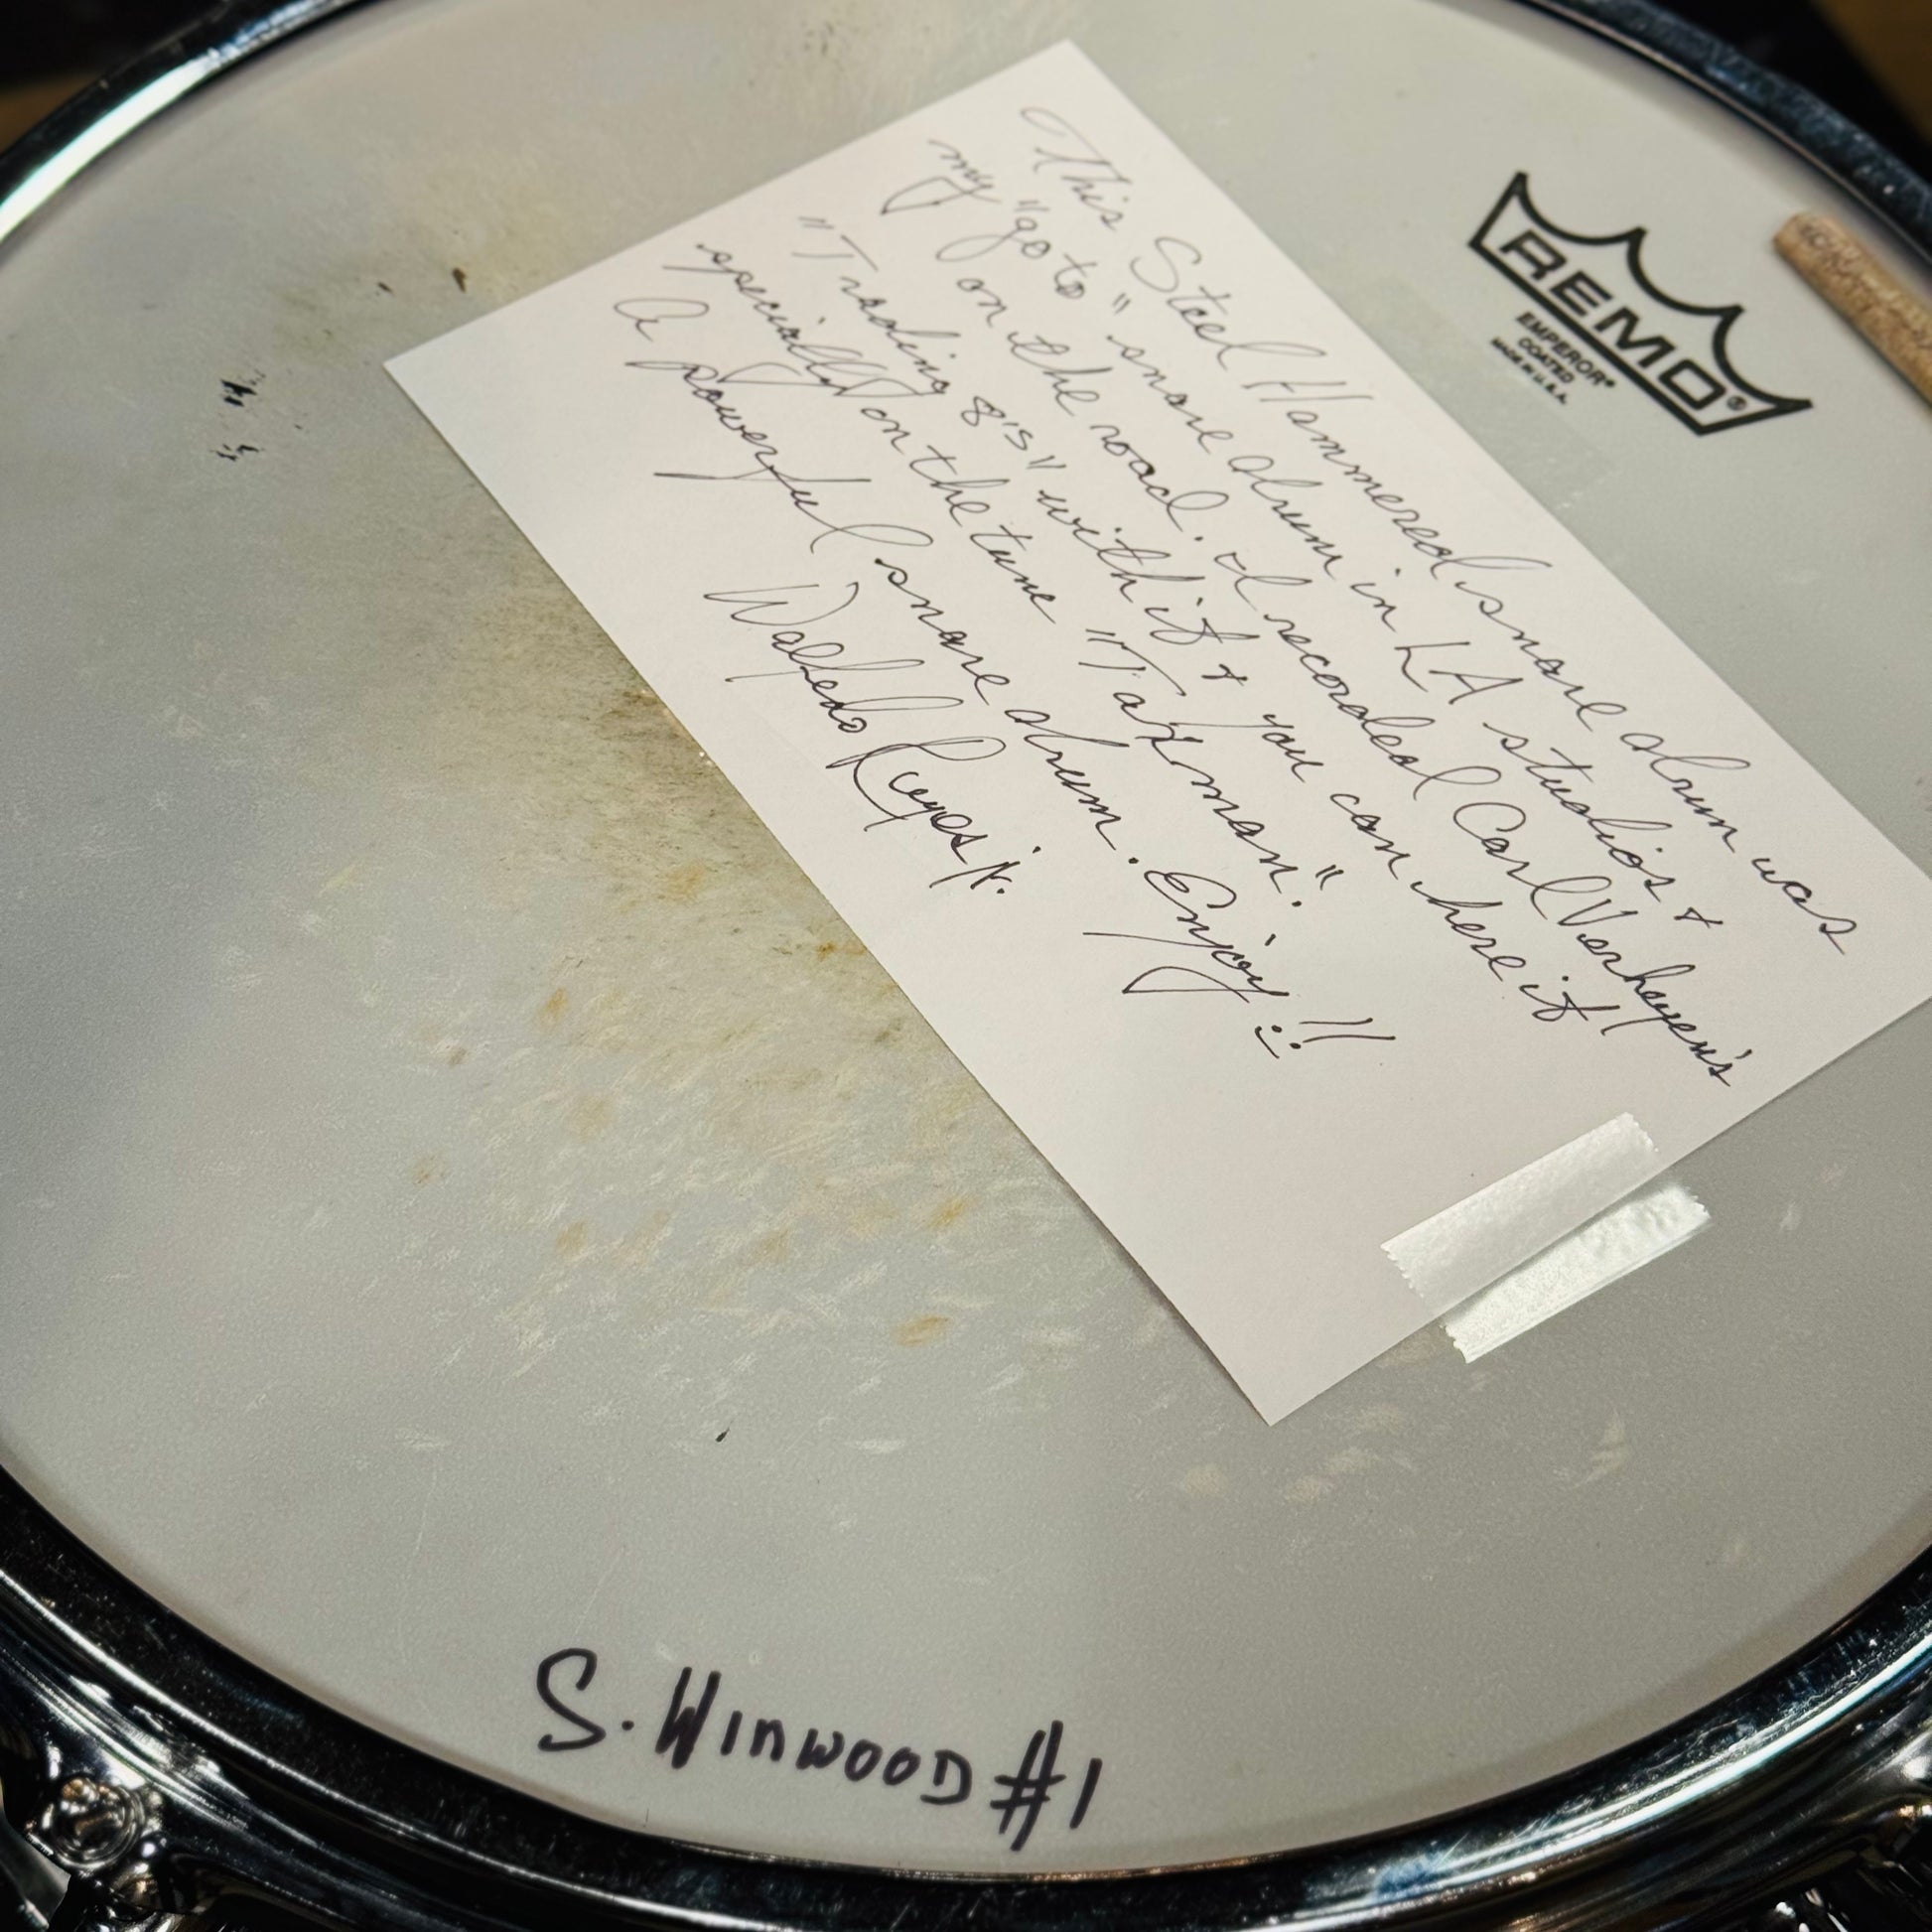 This Steel Hammered snare drum was
my "go to" snare drum in LA studios &
on the road. I recorded Carl Verheyen's
"Trading 8's" with it & you can here it
specially on the tune "Taxman."
A powerful snare drum. Enjoy!!
Walfredo Reyes Jr.
REMO®
EMPEROR®
COATED
MADE IN U.S.A.
S. Winwood #1